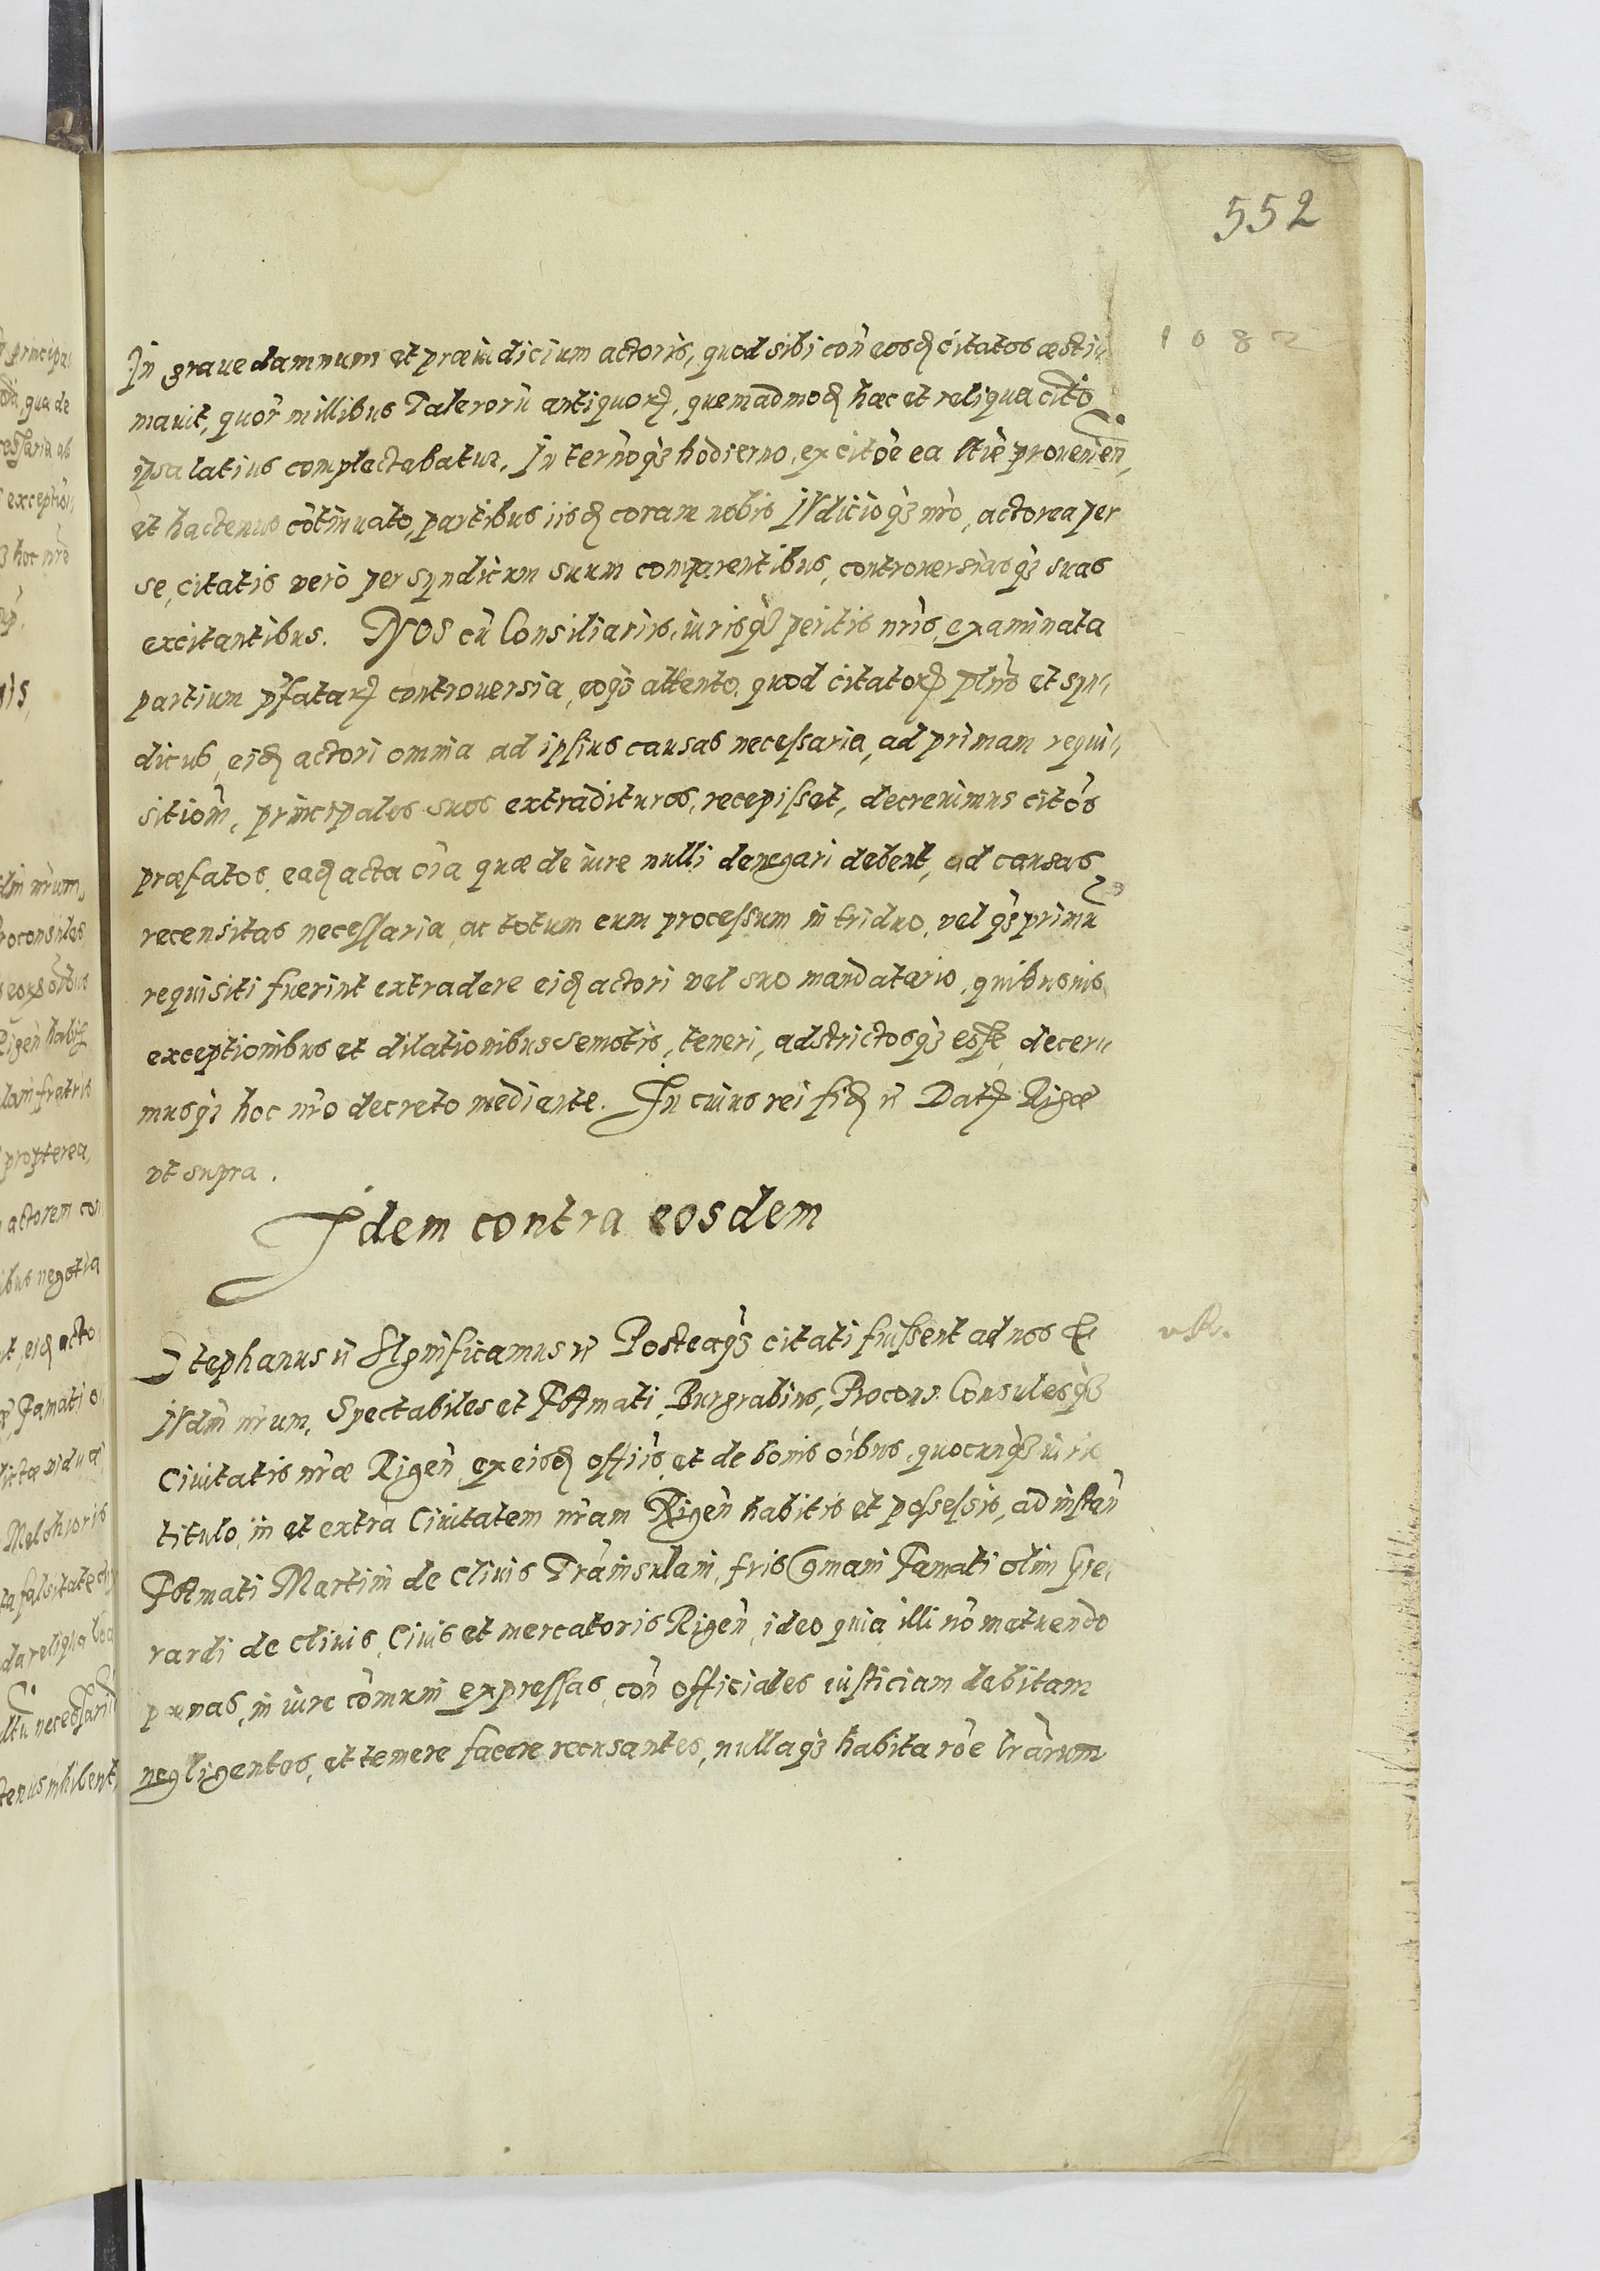 552
1082
In graue damnum et præiudicium actoris, quod sibi con̄ eosq citatos æsti⸗
mauit, quor̄ millibus Talerorū antiquorꝝ, quemadmoq hæc et reliqua cit̄o
ipsa latius complectabatur. In ter̄noq3 hodierno, ex cit̄oe ea l̄tie prouenien̄,
et hactenus cōtinuato, partibus iisq coram nobis Iudicioq3 nr̄o, actorea per
se, citatis vero per syndicum suum comparentibus, controuersiasq3 suas
excitantibus. NOS cū Consiliariis, iurisq3 peritis nr̄is, examinata
partium p̄fatarꝝ controuersia, eoq3 attento, quod citatorꝝ pln̄o et syn⸗
dicus, eiq actori omnia ad ipsius causas necessaria, ad primam requi⸗
sitiōm, principales suos extradituros, recepisset, decreuimus citōs
præfatos, eaq acta oīa quæ de iure nulli denegari debent, ad causas
recensitas necessaria, ac totum eum processum in triduo, vel q3 primū
requisiti fuerint extradere eiq actori vel suo mandatario, quibusuis
exceptionibus et dilationibus semotis, teneri, adstrictosq3 esse, decern
musq3 hoc nr̄o decreto mediante. In cuius rei fiq ꝛc Datꝭ Rigæ
vt supra.
Idem contra eosdem
Stephanus ꝛc Significamus ꝛc Posteaq3 citati fuissent ad nos &
Iudm̄ nr̄um, Spectabiles et F̄mati, Burgrabius, Procons. Consulesq3
Ciuitatis nr̄æ Rigen̄, ex eisq offiis, et de bonis oībus, quocunq3 iuris
titulo, in et extra Ciuitatem nr̄am Rigen̄ habitis et possessis, ad instan̄
F̄mati Martini de Cliuis Trāinsulani, fr̄is Gmani Famati olim Ge⸗
rardi de Cliuis, Ciuis et mercatoris Rigen̄, ideo quia illi nō metuendo
pœnas, in iure cōmuni expressas, con̄ officiales iusticiam debitam
negligentes, et temere facere recusantes, nullaq3 habita rōe lr̄arum